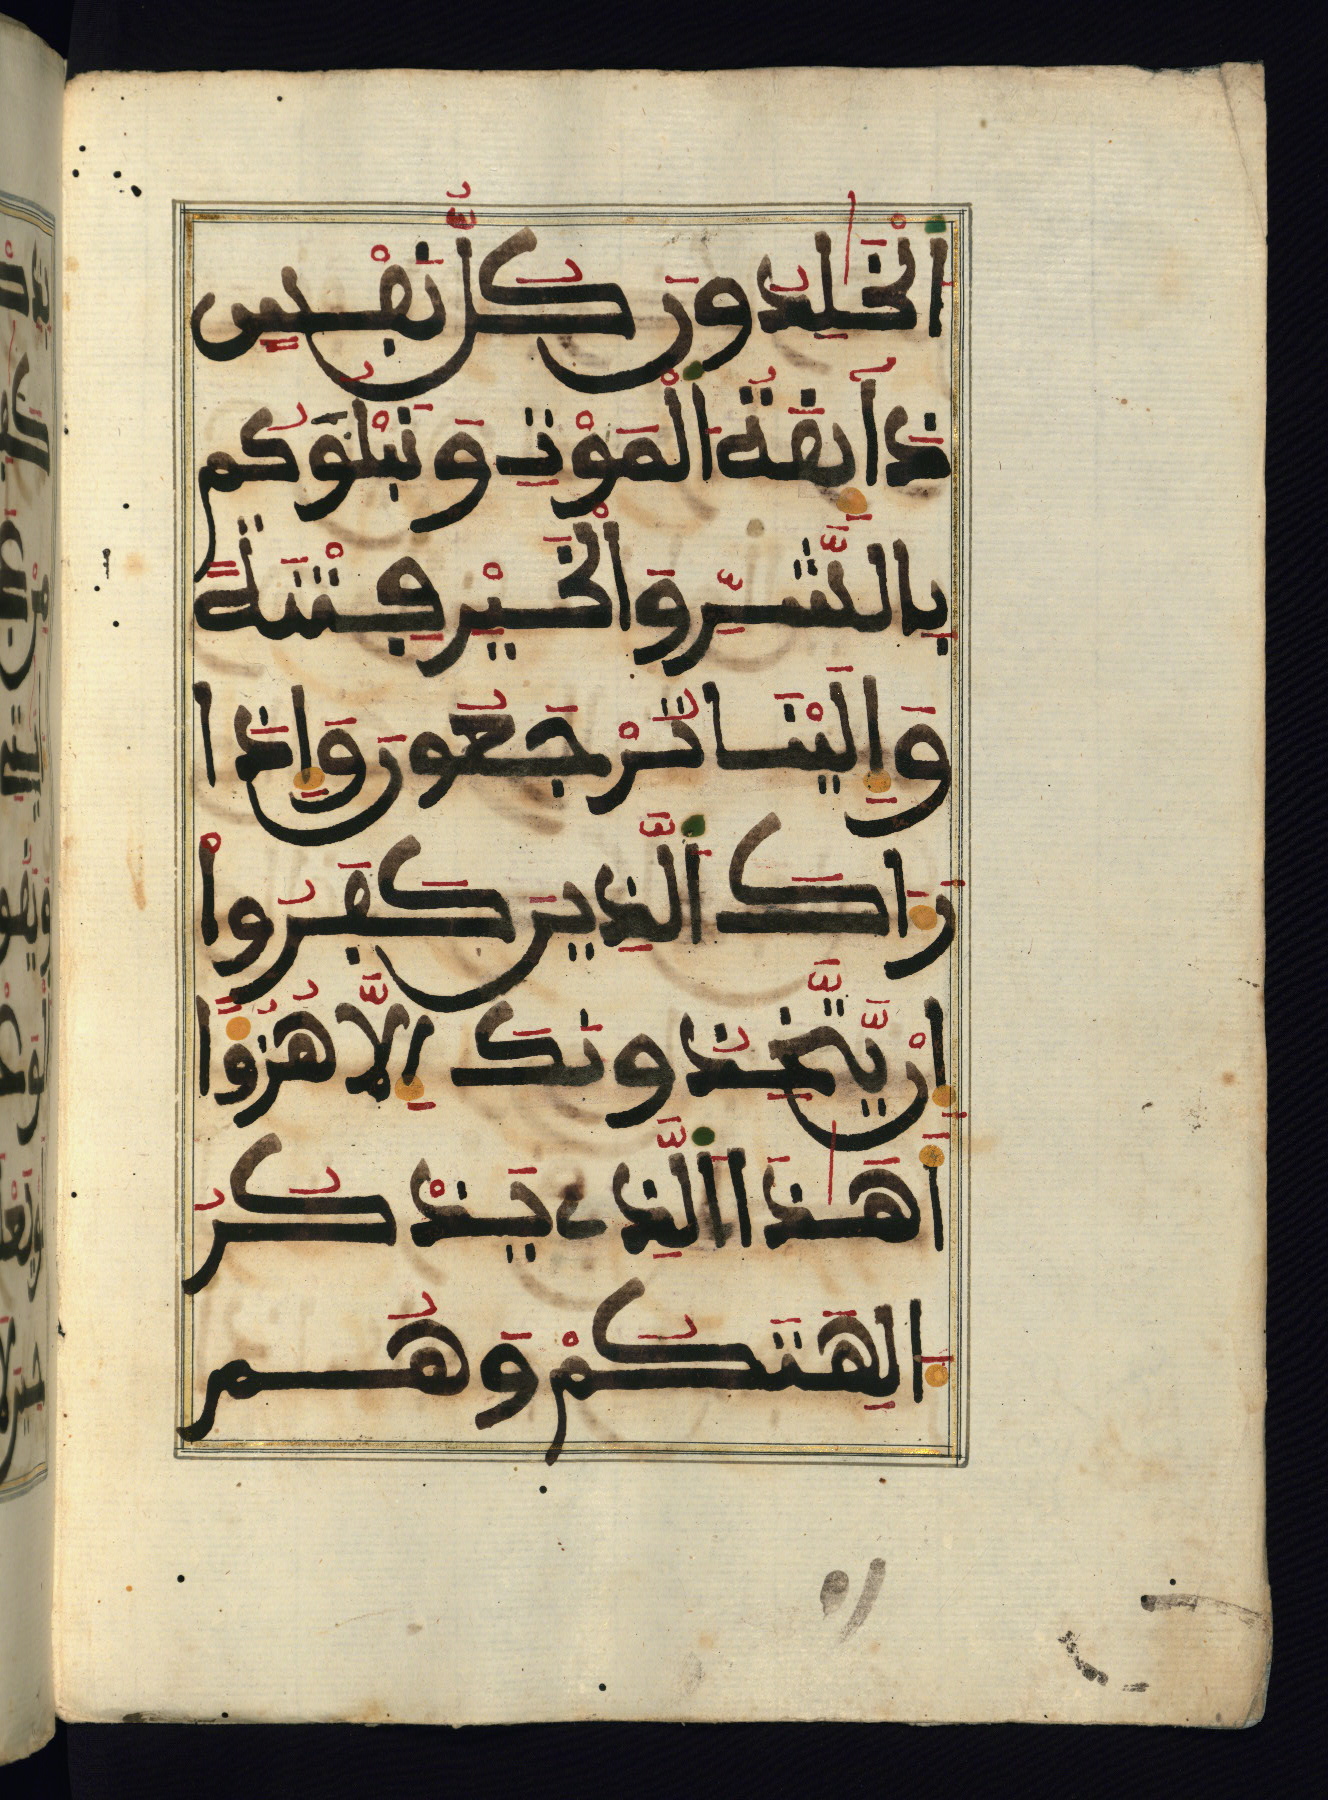 اَ۬لْخَٰلِدُونَ كُلُّ نَفْسٖ
ذَآئِقَةُ اُ۬لْمَوْتِ وَنَبْلُوَكُم
بِالشَّرِّ وَالْخَيْرِ فِتْنَةً
وَإِلَيْنَا تُرْجَعُونَ وَإِذَا
رَءَاكَ اَ۬لذِينَ كَفَرُواْ
إِنْ يَّتَّخِذُونَكَ إِلَّا هُزُؤاً
أَهَٰذَا اَ۬لذِے يَذْكُرُ
ءَالِهَتَكُمْ وَهُم